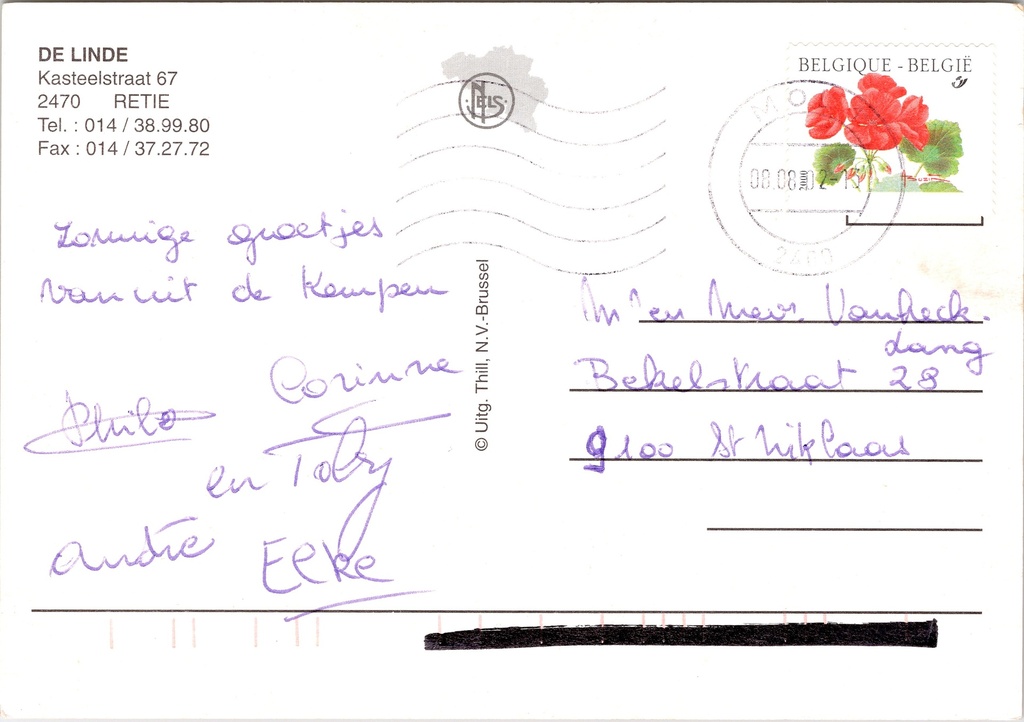 DE LINDE
Kasteelstraat 67
2470 RETIE
Tel. : 014 / 38.99.80
Fax : 014 / 37.27.72
NELS
BELGIQUE - BELGIË
MOL
08.08.02-15
2400
BUZIN
Zonnige groetjes
vanuit de Kempen
Corinne
Philo
en Toby
André Elke
© Uitg. Thill, N.V.-Brussel
Mr en Mevr. Vanheck.
Lang
Bekelstraat 28
9100 St Niklaas